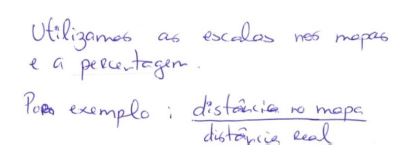 Utilizamos as escalas nos mapas
e a percentagem.
Por exemplo : distância no mapa
distância real